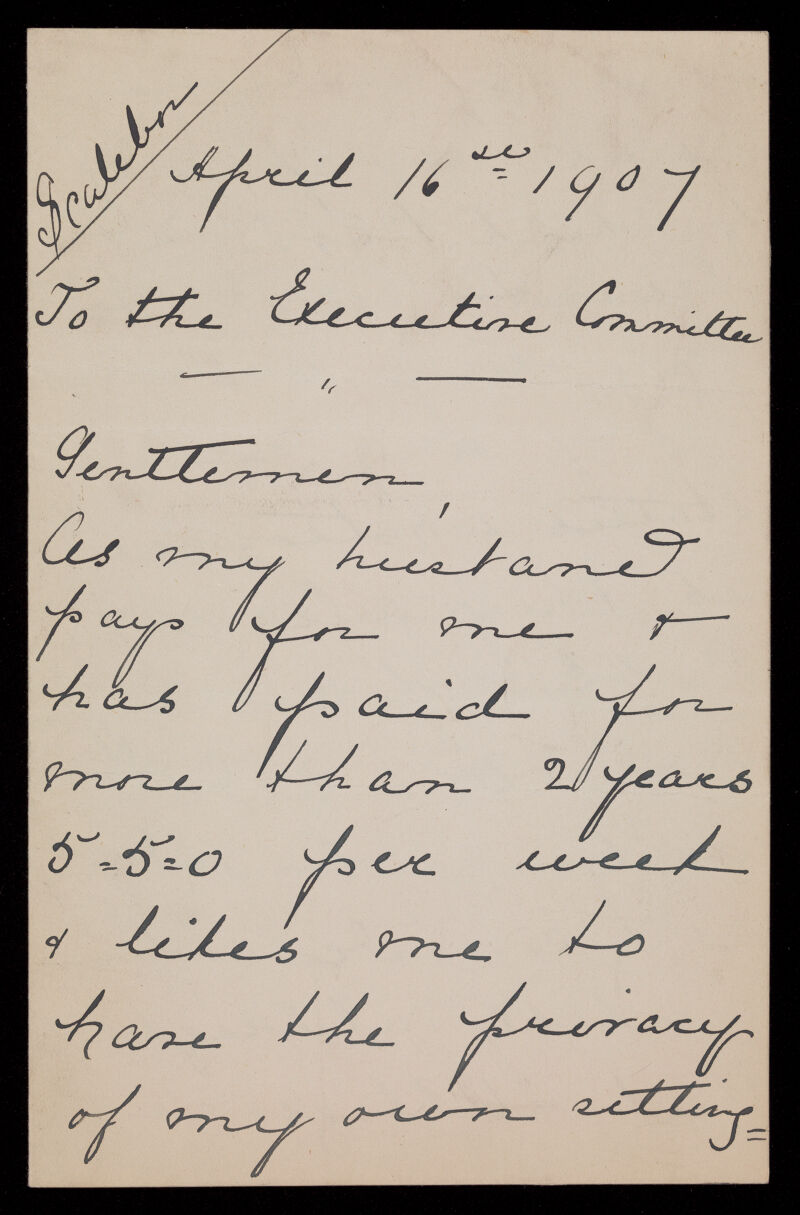 Scalebor
April 16st 1907
To the Executive Committee
— " —
Gentlemen,
As my husband
pays for me &
has paid for
more than 2 years
5=5=0 per week
& likes me to
have the privacy
of my own sitting=